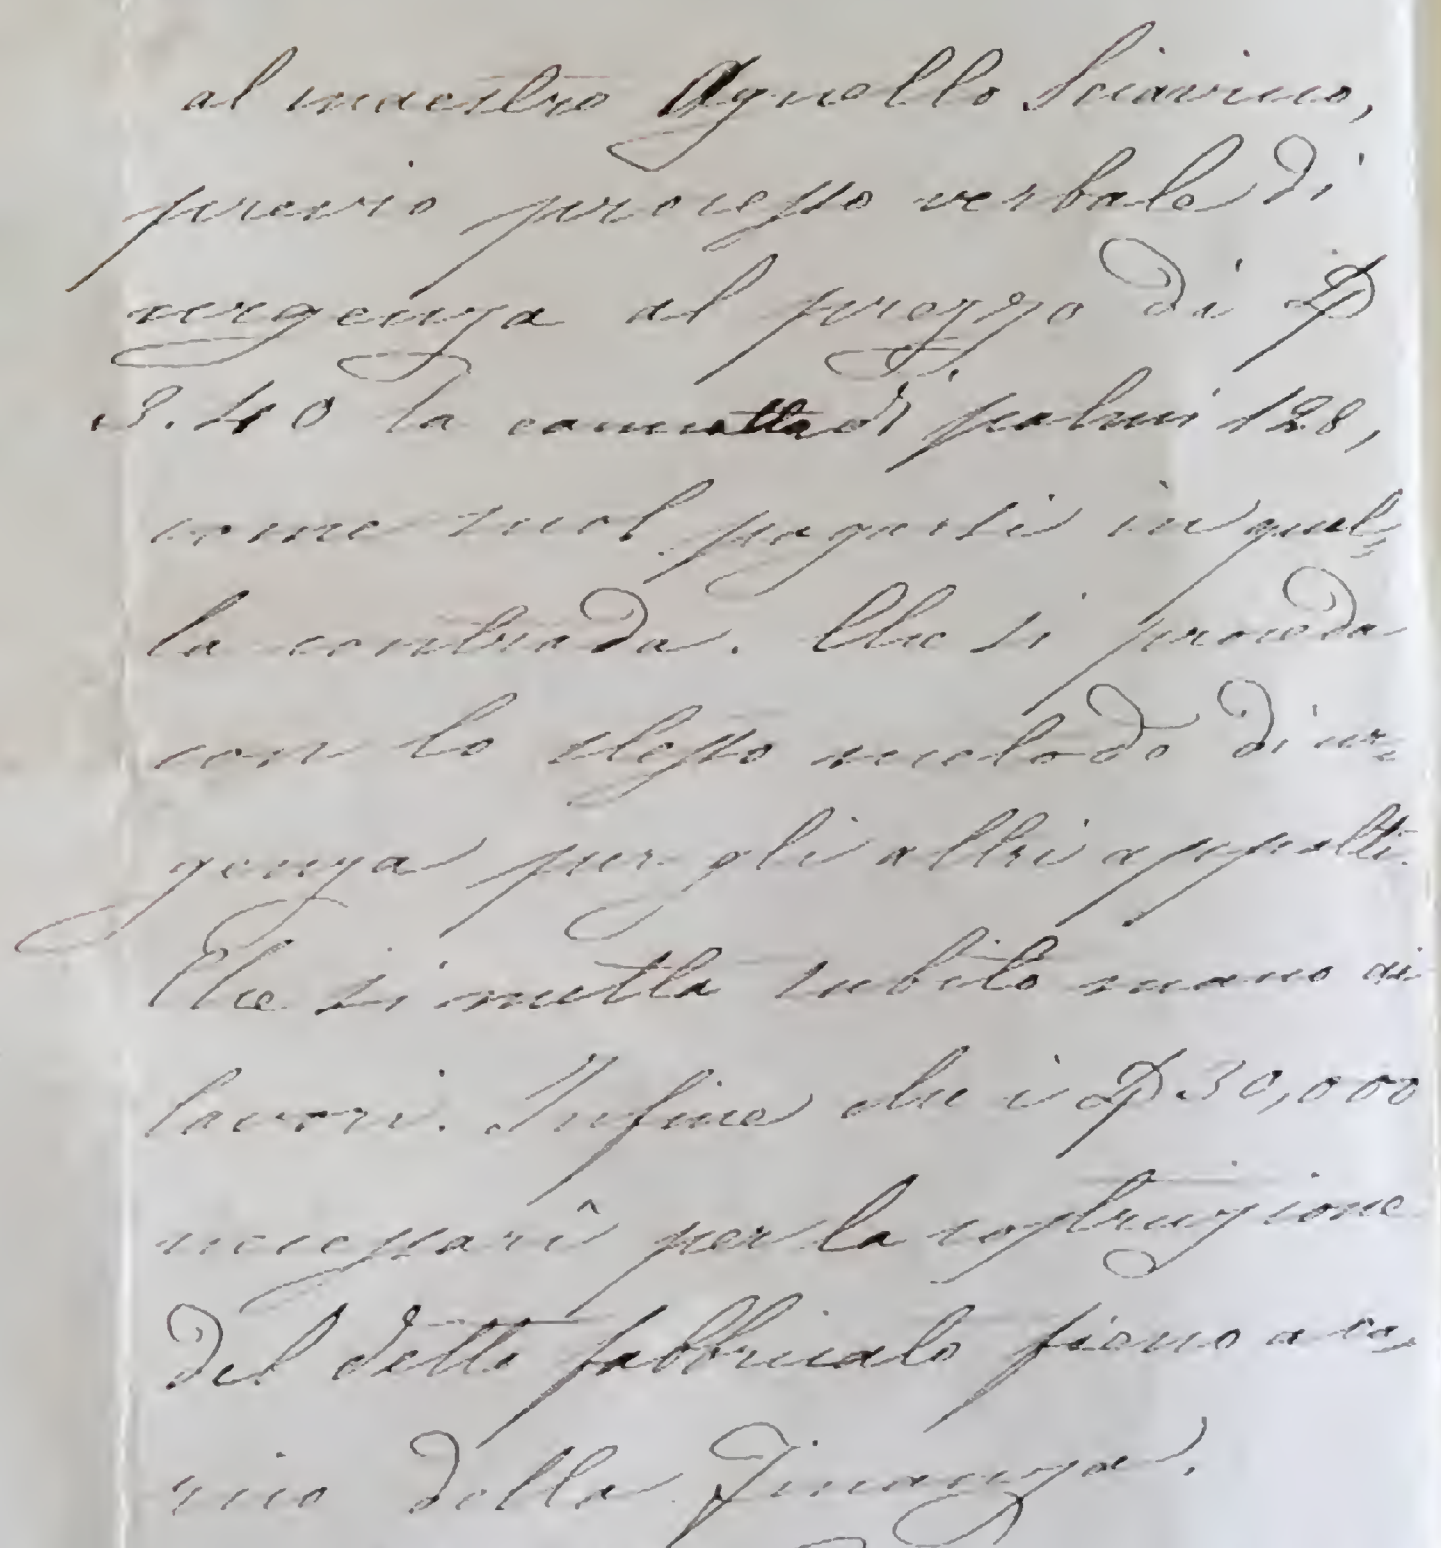 al maestro Agnello Sciavicco,
previo processo verbale di
urgenza al prezzo di
3.40 la cannetta di palmi 128,
come suol pagarsi in quel=
la contrada. Che si proceda
con lo stesso metodo di ur=
genza per gli altri appalti.
Che si metta subito mano ai
lavori. Infine che i 30,000
necessarî per la costruzione
del detto fabbricato siano a ca=
rico della Finanza.